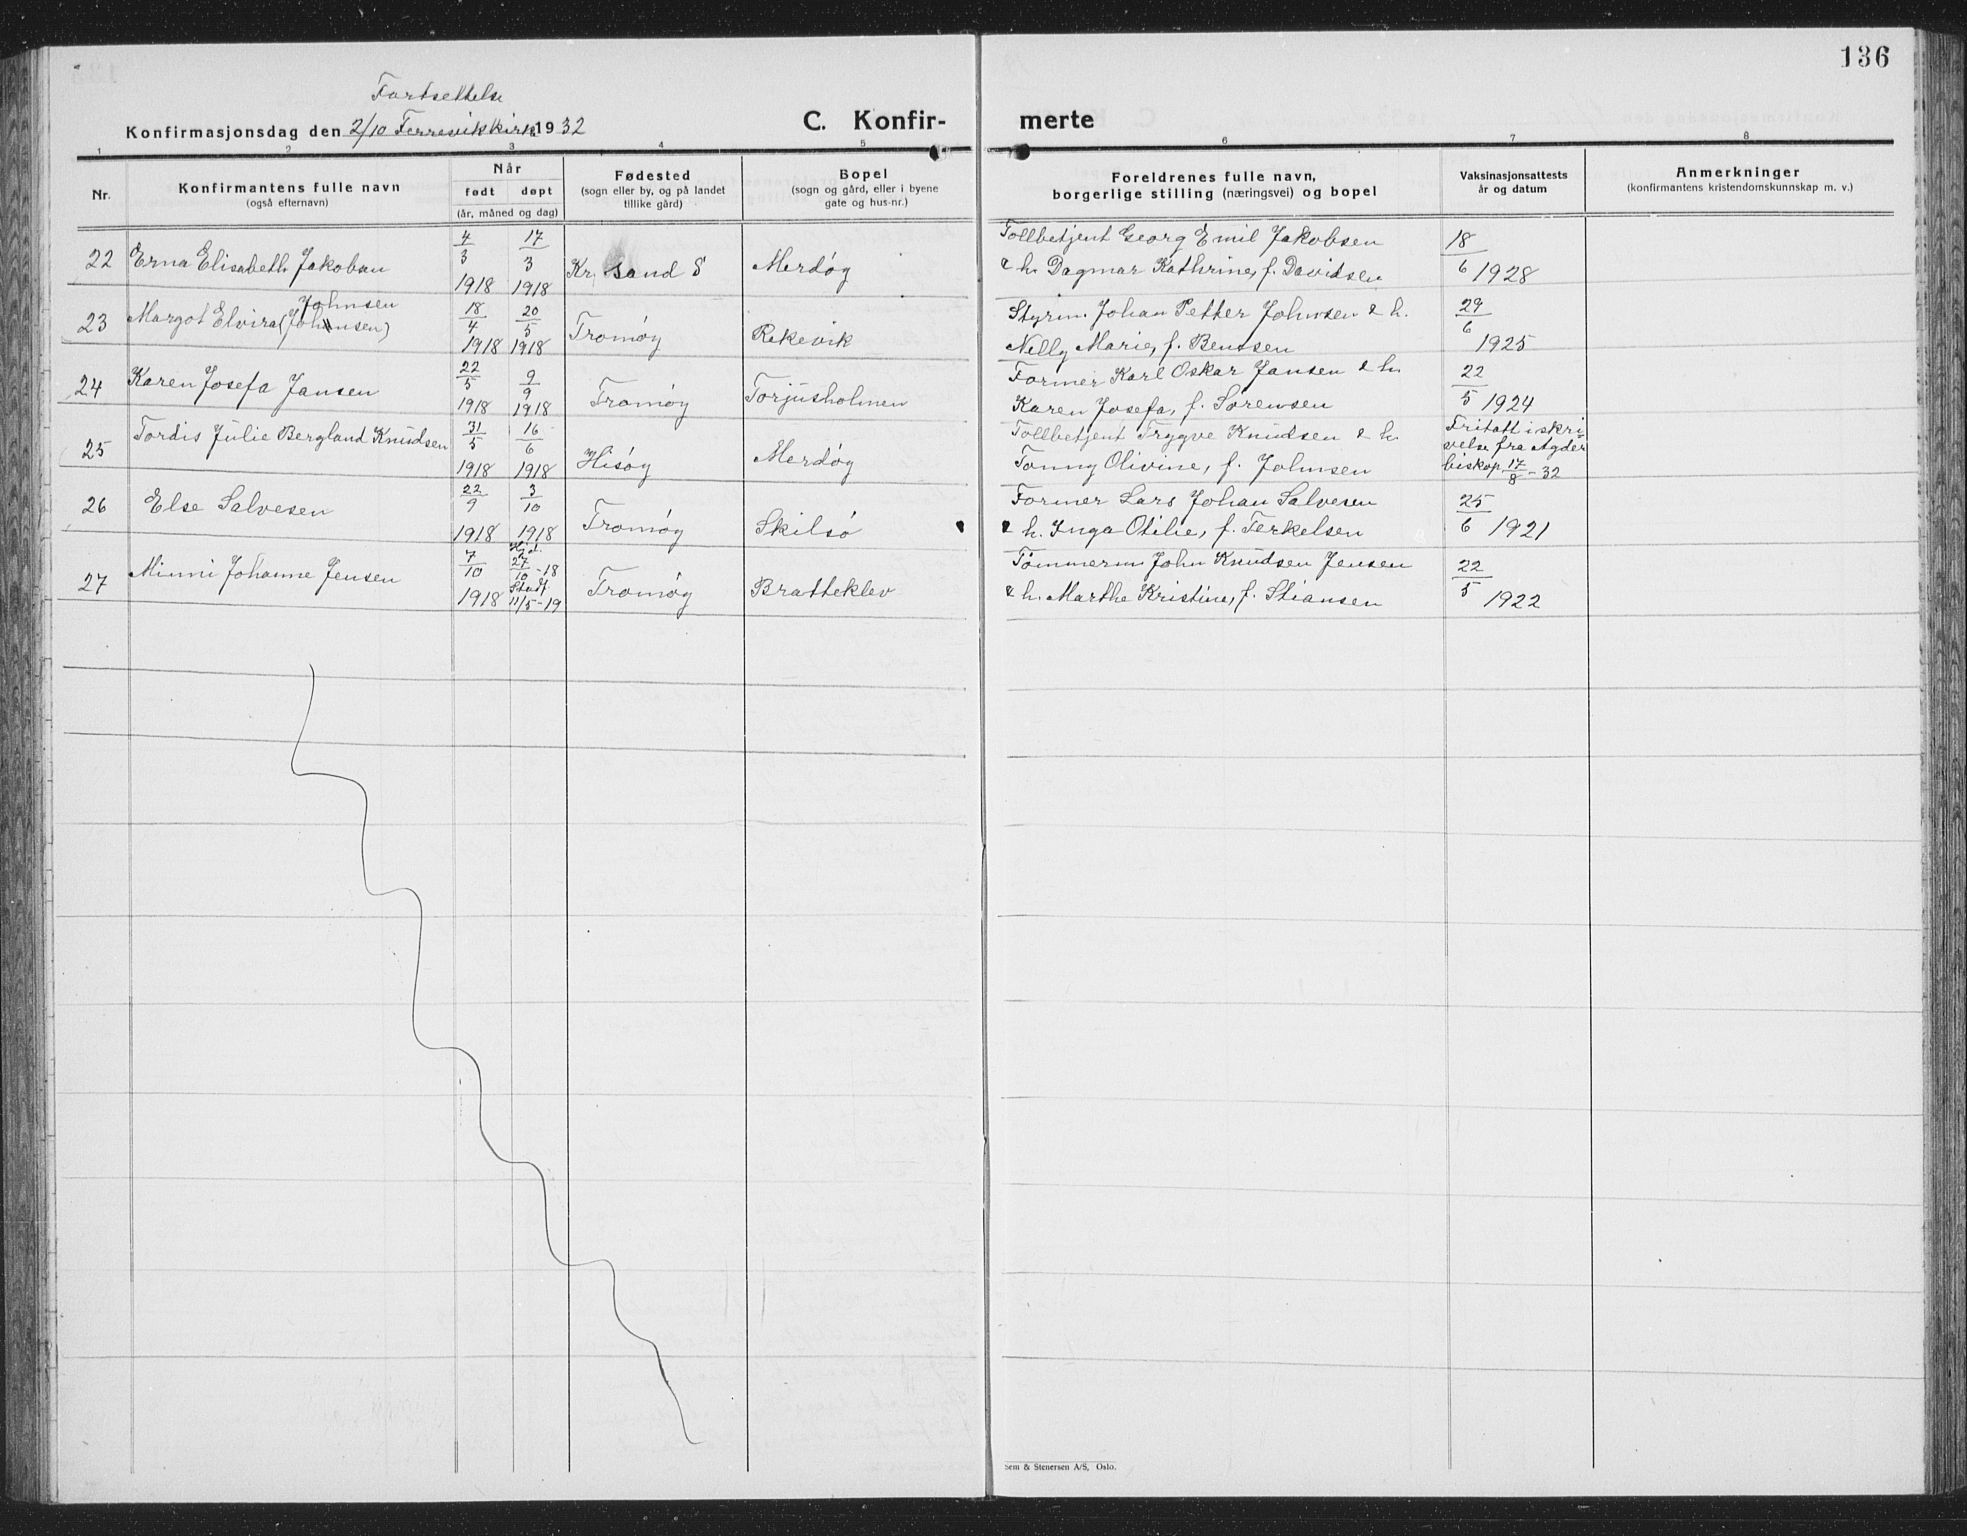 136
Fortsettelse
Konfirmasjonsdag den 2/10 Færevikkirk 1932
C. Konfir-
merte
1 2 3 4 5 6 7 8
Nr.
Konfirmantens fulle navn
(også efternavn)
Når
født døpt
(år, måned og dag)
Fødested
(sogn eller by, og på landet
tillike gård)
Bopel
(sogn og gård, eller i byene
gate og hus-nr.)
Foreldrenes fulle navn,
borgerlige stilling (næringsvei) og bopel
Vaksinasjonsattests
år og datum
Anmerkninger
(konfirmantens kristendomskunnskap m. v.)
4/3 17/3 Tollbetjent Georg Emil Jakobsen 18/6
22 Erna Elisabeth Jakobsen 1918 1918 Kr. sand S Merdøy & h. Dagmar Kathrine, f. Davidsen 1928
Johnsen
23 Margot Elvira (Johansen) 18/4 20/5 Styrm. Johan Petter Johnsen & h. 29/6
1918 1918 Tromøy Rekevik Nelly Marie, f. Bentsen 1925
24 Karen Josefa Jansen 22/5 9/9 Former Karl Oskar Jansen & h. 22/5
1918 1918 Tromøy Torjusholmen Karen Josefa, f. Sørensen 1924
25 Tordis Julie Bergland Knudsen 31/5 16/6 Tollbetjent Trygve Knudsen & h. Fritatt i skri-
velse fra Agder
1918 1918 Hisøy Merdøy Tonny Olivine, f. Johnsen biskop 17/8-32
26 Else Salvesen 22/9 3/10 Former Lars Johan Salvesen 25/6
1918 1918 Tromøy Skilsø & h. Inga Otilie, f. Terkelsen 1921
27 Minni Johanne Jensen 7/10 Hjd. 27/10-18 Tømmerm. John Knudsen Jensen 22/5
1918 Stadf. 11/5-19 Tromøy Bratteklev & h. Marthe Kristine, f. Stiansen 1922
Sem & Stenersen A/S, Oslo.